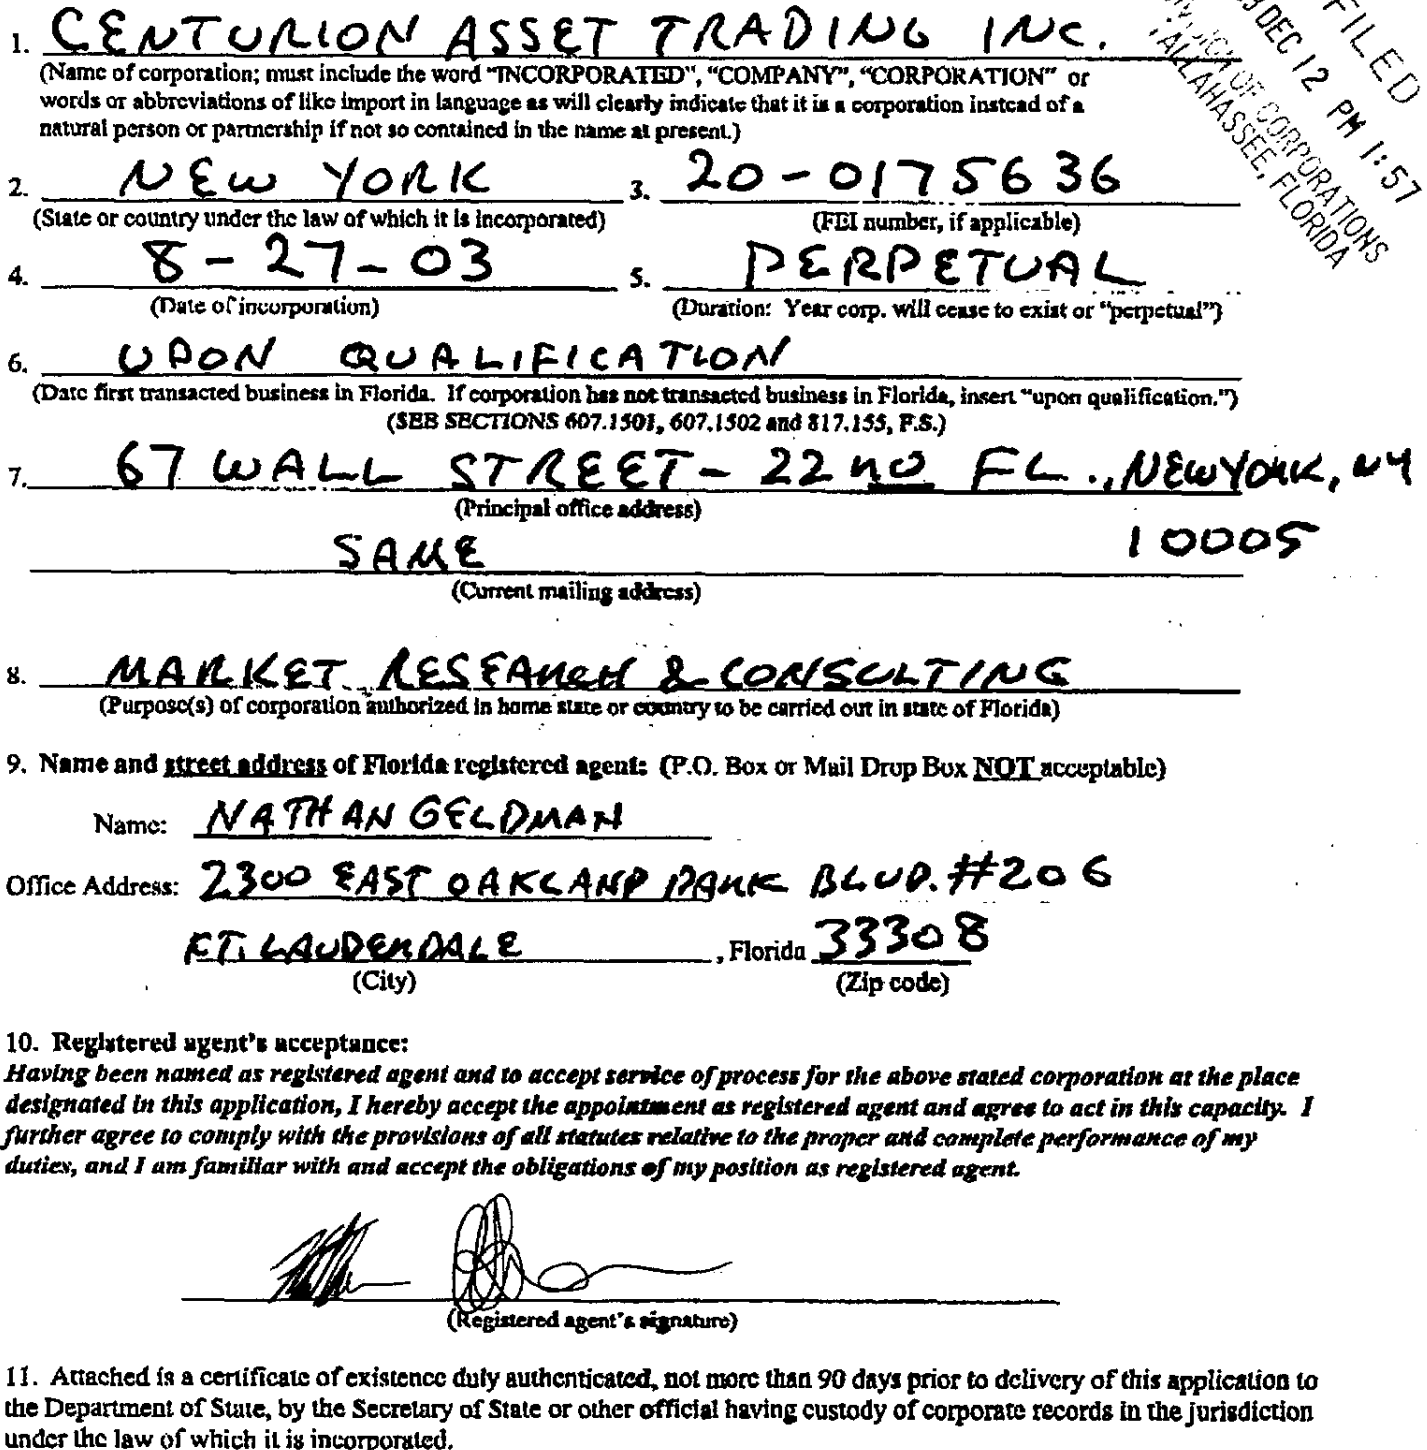 1. CENTURION ASSET TRADING INC.
(Name of corporation; must include the word "INCORPORATED", "COMPANY", "CORPORATION" or
words or abbreviations of like import in language as will clearly indicate that it is a corporation instead of a
natural person or partnership if not so contained in the name at present.)
FILED
DEC 12 PM 1:57
OF CORPORATIONS
TALLAHASSEE, FLORIDA
2. NEW YORK 3. 20-0175636
(State or country under the law of which it is incorporated) (FEI number, if applicable)
4. 8-27-03 5. PERPETUAL
(Date of incorporation) (Duration: Year corp. will cease to exist or "perpetual")
6. UPON QUALIFICATION
(Date first transacted business in Florida. If corporation has not transacted business in Florida, insert "upon qualification.")
(SEE SECTIONS 607.1501, 607.1502 and 817.155, F.S.)
7. 67 WALL STREET - 22ND FL., NEW YORK, NY
(Principal office address)
10005
SAME
(Current mailing address)
8. MARKET RESEARCH & CONSULTING
(Purpose(s) of corporation authorized in home state or country to be carried out in state of Florida)
9. Name and street address of Florida registered agent: (P.O. Box or Mail Drop Box NOT acceptable)
Name: NATHAN GELDMAN
Office Address: 2300 EAST OAKLAND PARK BLVD. #206
FT. LAUDERDALE, Florida 33308
(City) (Zip code)
10. Registered agent's acceptance:
Having been named as registered agent and to accept service of process for the above stated corporation at the place
designated in this application, I hereby accept the appointment as registered agent and agree to act in this capacity. I
further agree to comply with the provisions of all statutes relative to the proper and complete performance of my
duties, and I am familiar with and accept the obligations of my position as registered agent.
(Registered agent's signature)
11. Attached is a certificate of existence duly authenticated, not more than 90 days prior to delivery of this application to
the Department of State, by the Secretary of State or other official having custody of corporate records in the jurisdiction
under the law of which it is incorporated.